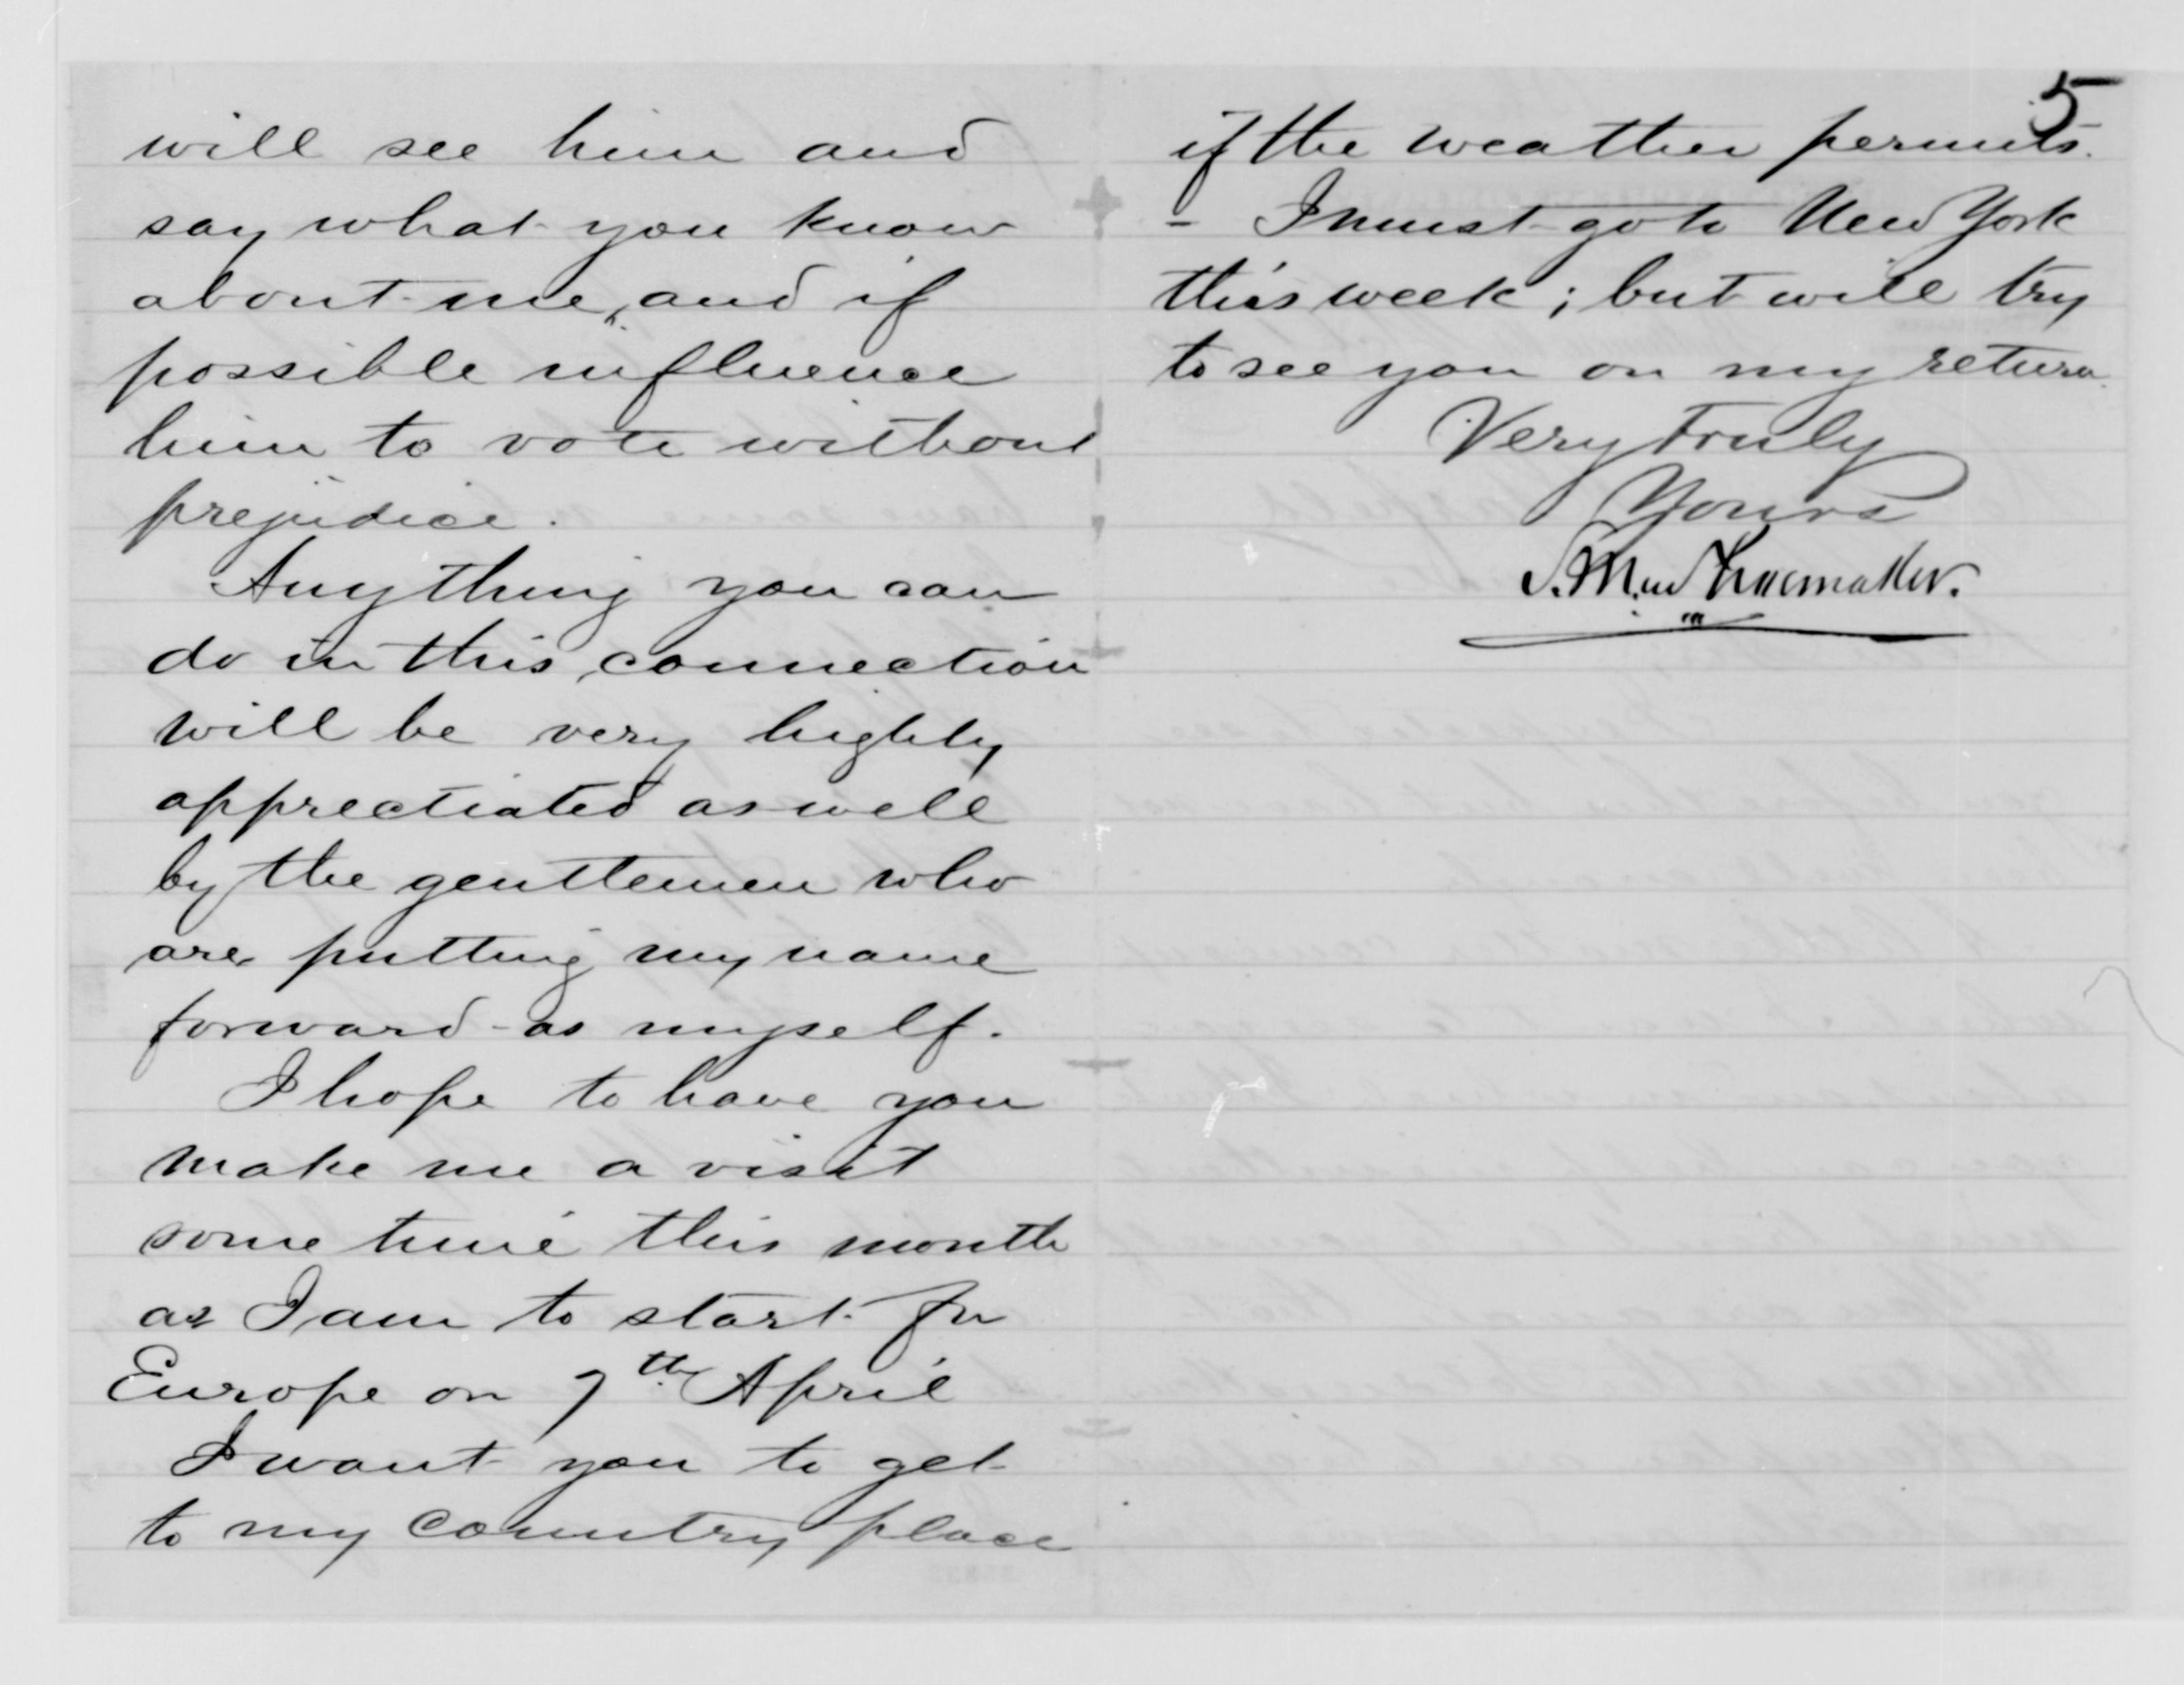 will see him and
say what you know
about me, and if
possible influence
him to vote without
prejudice.
Anything you can
do in this connection
will be very highly
appreciated as well
by the gentlemen who
are putting my name
forward - as myself.
I hope to have you
make me a visit
some time this month
as I am to start for
Europe on 7th April
I want you to get
to my country place
5
if the weather permits.
- I must go to New York
this week; but will try
to see you on my return.
Very Truly
Yours
S. M. Shoemaker.